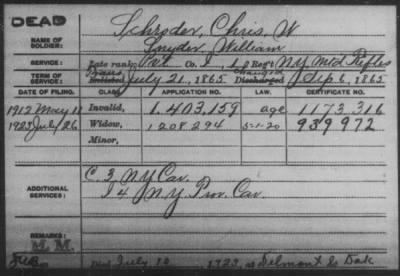 DEAD
NAME OF SOLDIER:
Schroder, Chris, W
Snyder, William
SERVICE:
Late rank, Pvt Co. I, Reg't N.Y. Mtd Rifles
TERM OF SERVICE:
Trans Changed
Enlisted July 21, 1865 Discharged Sep 6, 1865
DATE OF FILING. CLASS. APPLICATION NO. LAW. CERTIFICATE NO.
1912 May 11 Invalid, 1.403.159 age 1173.316
1923 July 26 Widow, 1208294 5-1-20 939972
Minor,
ADDITIONAL SERVICES:
C. 3, N.Y. Cav.
I 4 N.Y. Prov. Cav.
REMARKS:
M. M.
Died July 10 1923, at Belmont So Dak